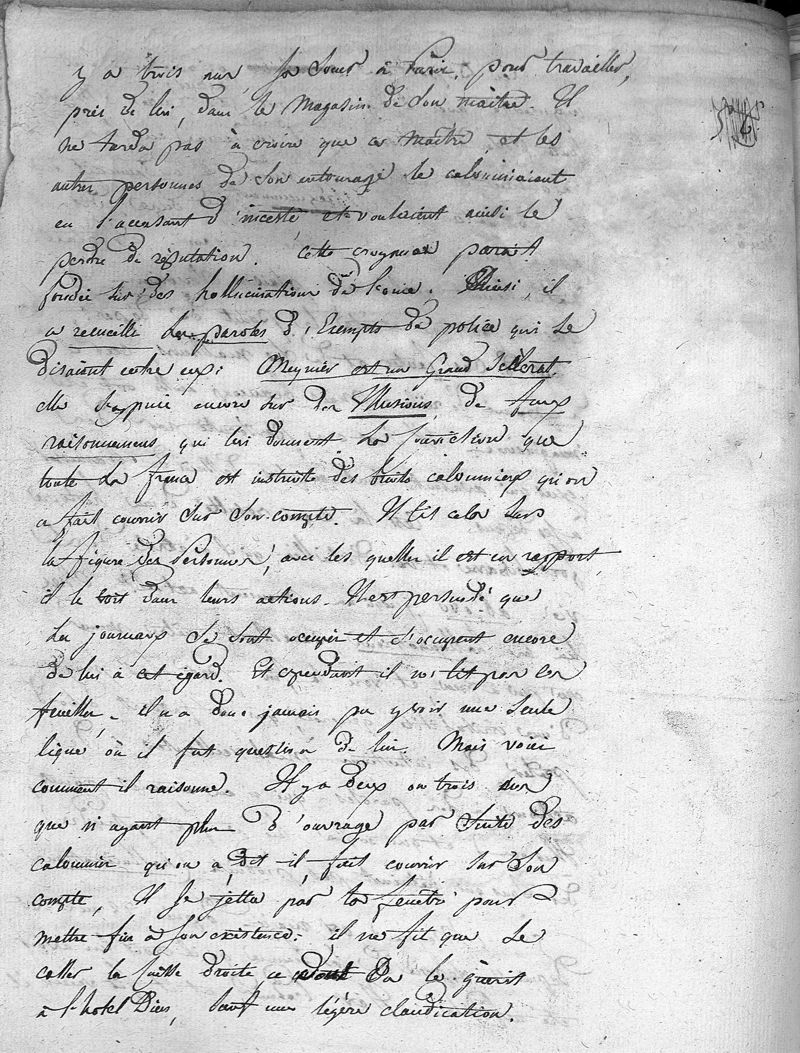 y a trois ans, sa Soeur à Paris, pour travailler,
près de lui, dans le Magasin de Son maitre. Il
ne tarda pas à croire que ce maitre, et les
autres personnes de Son entourage le calomniaient
en l'accusant d'inceste et voulaient ainsi le
perdre de réputation. Cette croyance parait
fondée sur des hallucinations de l'ouie. Ainsi, il
a recueilli les paroles d'Exempts de police qui se
disaient entre eux: Meynier est un Grand Scélérat
elle s'appuie encore sur des Illusions, de faux
raisonnemens, qui lui donnent la conviction que
toute la france est instruite des bruits calomnieux qu'on
a fait courrir sur Son compte. Il lit cela dans
la figure des Personnes, avec les quelles il est en rapport
il le voit dans leurs actions. Il est persuadé que
les journaux Se sont occupés et s'occupent encore
de lui à cet égard. Et cependant il ne lit pas ces
feuilles. il n'a donc jamais pu y voir une seule
ligne où il fut question de lui. Mais voici
comment il raisonne. Il y a deux ou trois ans
que n'ayant plus d'ouvrage par suite des
calomnies qu'on a, dit-il, fait courrir sur Son
compte, Il Se jetta par la fenêtre pour
mettre fin à Son existence. il ne fit que se
casser la Cuisse droite, ce dont on le guérit
à l'hotel Dieu, Sauf une légère claudication.